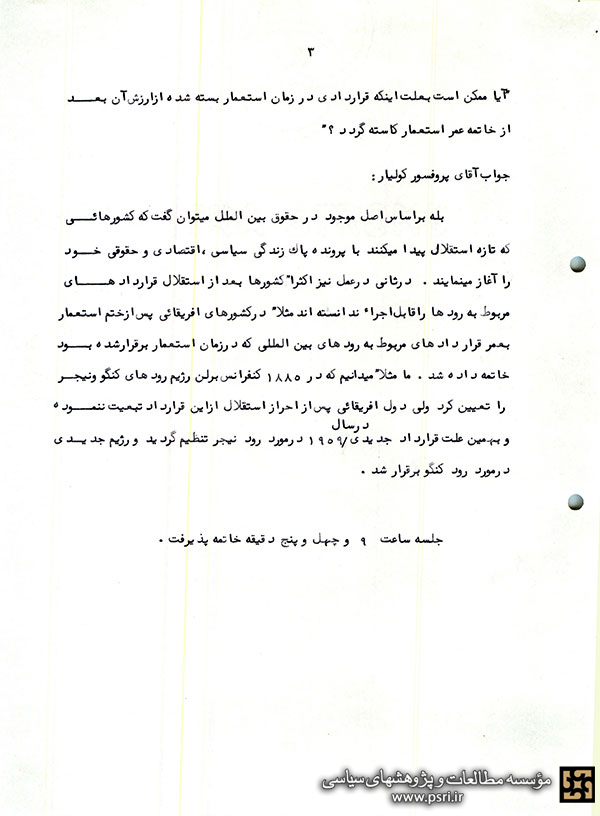 ۳
"آیا ممکن است بعلت اینکه قراردادی در زمان استعمار بسته شده از ارزش آن بعد
از خاتمه عمر استعمار کاسته گردد ؟"
جواب آقای پروفسور کولیار :
بله براساس اصل موجود در حقوق بین الملل میتوان گفت که کشورهائی
که تازه استقلال پیدا میکنند با پرونده پاک زندگی سیاسی ، اقتصادی و حقوقی خود
را آغاز مینمایند . در ثانی در عمل نیز اکثرا" کشورها بعد از استقلال قرارداد های
مربوط به رود ها را قابل اجراء ندانسته اند مثلا" در کشورهای افریقائی پس از ختم استعمار
بعمر قرار داد های مربوط به رود های بین المللی که در زمان استعمار برقرار شده بود
خاتمه داده شد . ما مثلا" میدانیم که در ۱۸۸۵ کنفرانس برلن رژیم رود های کنگو و نیجر
را تعیین کرد ولی دول افریقائی پس از احراز استقلال از این قرارداد تبعیت ننموده
در سال
و بهمین علت قرارداد جدیدی/ ۱۹۵۹ در مورد رود نیجر تنظیم گردید و رژیم جدیدی
در مورد رود کنگو برقرار شد .
جلسه ساعت ۹ و چهل و پنج دقیقه خاتمه پذیرفت .
مؤسسه مطالعات و پژوهشهای سیاسی
www.psri.ir